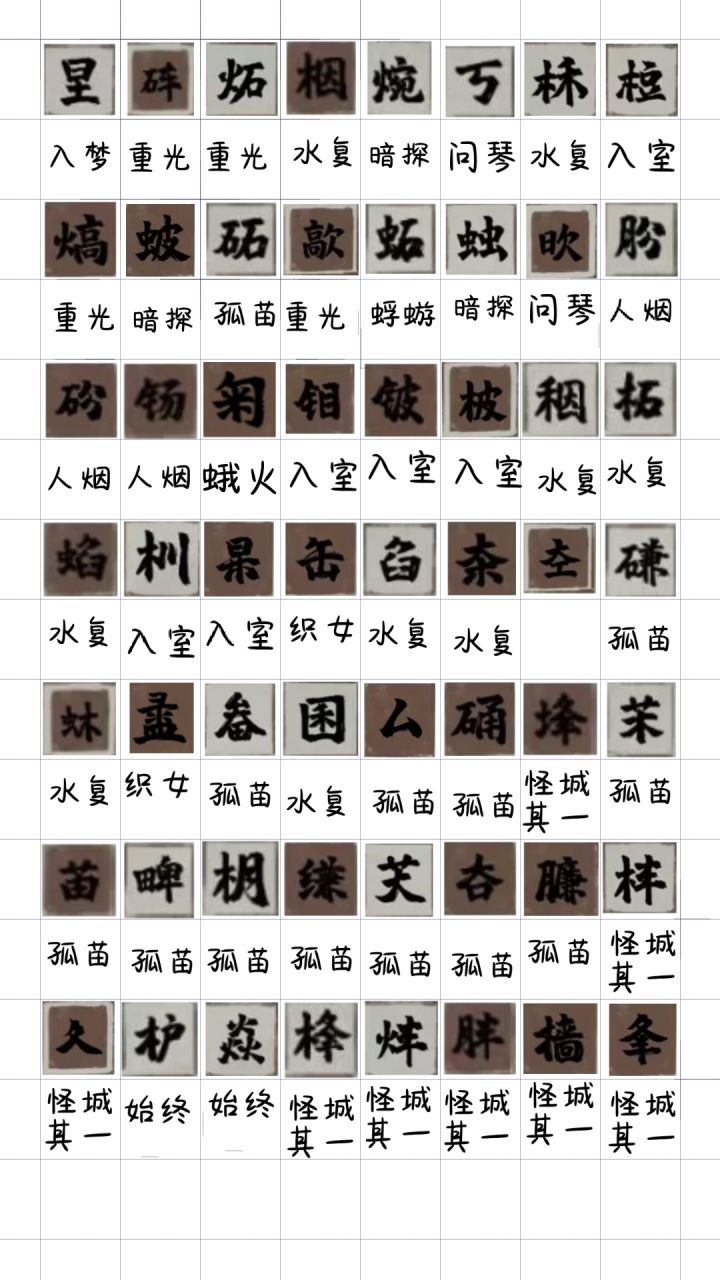 砗 炻 栶 焥 丂
入梦 重光 重光 水复 暗探 问琴 水复 入室
熇 蚾 砳 歊 肦
重光 暗探 孤苗 重光 蜉蝣 暗探 问琴 人烟
砏 钖 匊 钼 铍 柀 秵 柘
人烟 人烟 蛾火 入室 入室 入室 水复 水复
蜭 杲 缶 臽 磏
水复 入室 入室 织女 水复 水复 孤苗
畚 困 厶 硧 埄 苿
水复 织女 孤苗 水复 孤苗 孤苗 怪城其一 孤苗
苗 缣 芺 夻 臁
孤苗 孤苗 孤苗 孤苗 孤苗 孤苗 孤苗 怪城其一
夂 枦 焱 桻 炐 肨 樯 夆
怪城其一 始终 始终 怪城其一 怪城其一 怪城其一 怪城其一 怪城其一